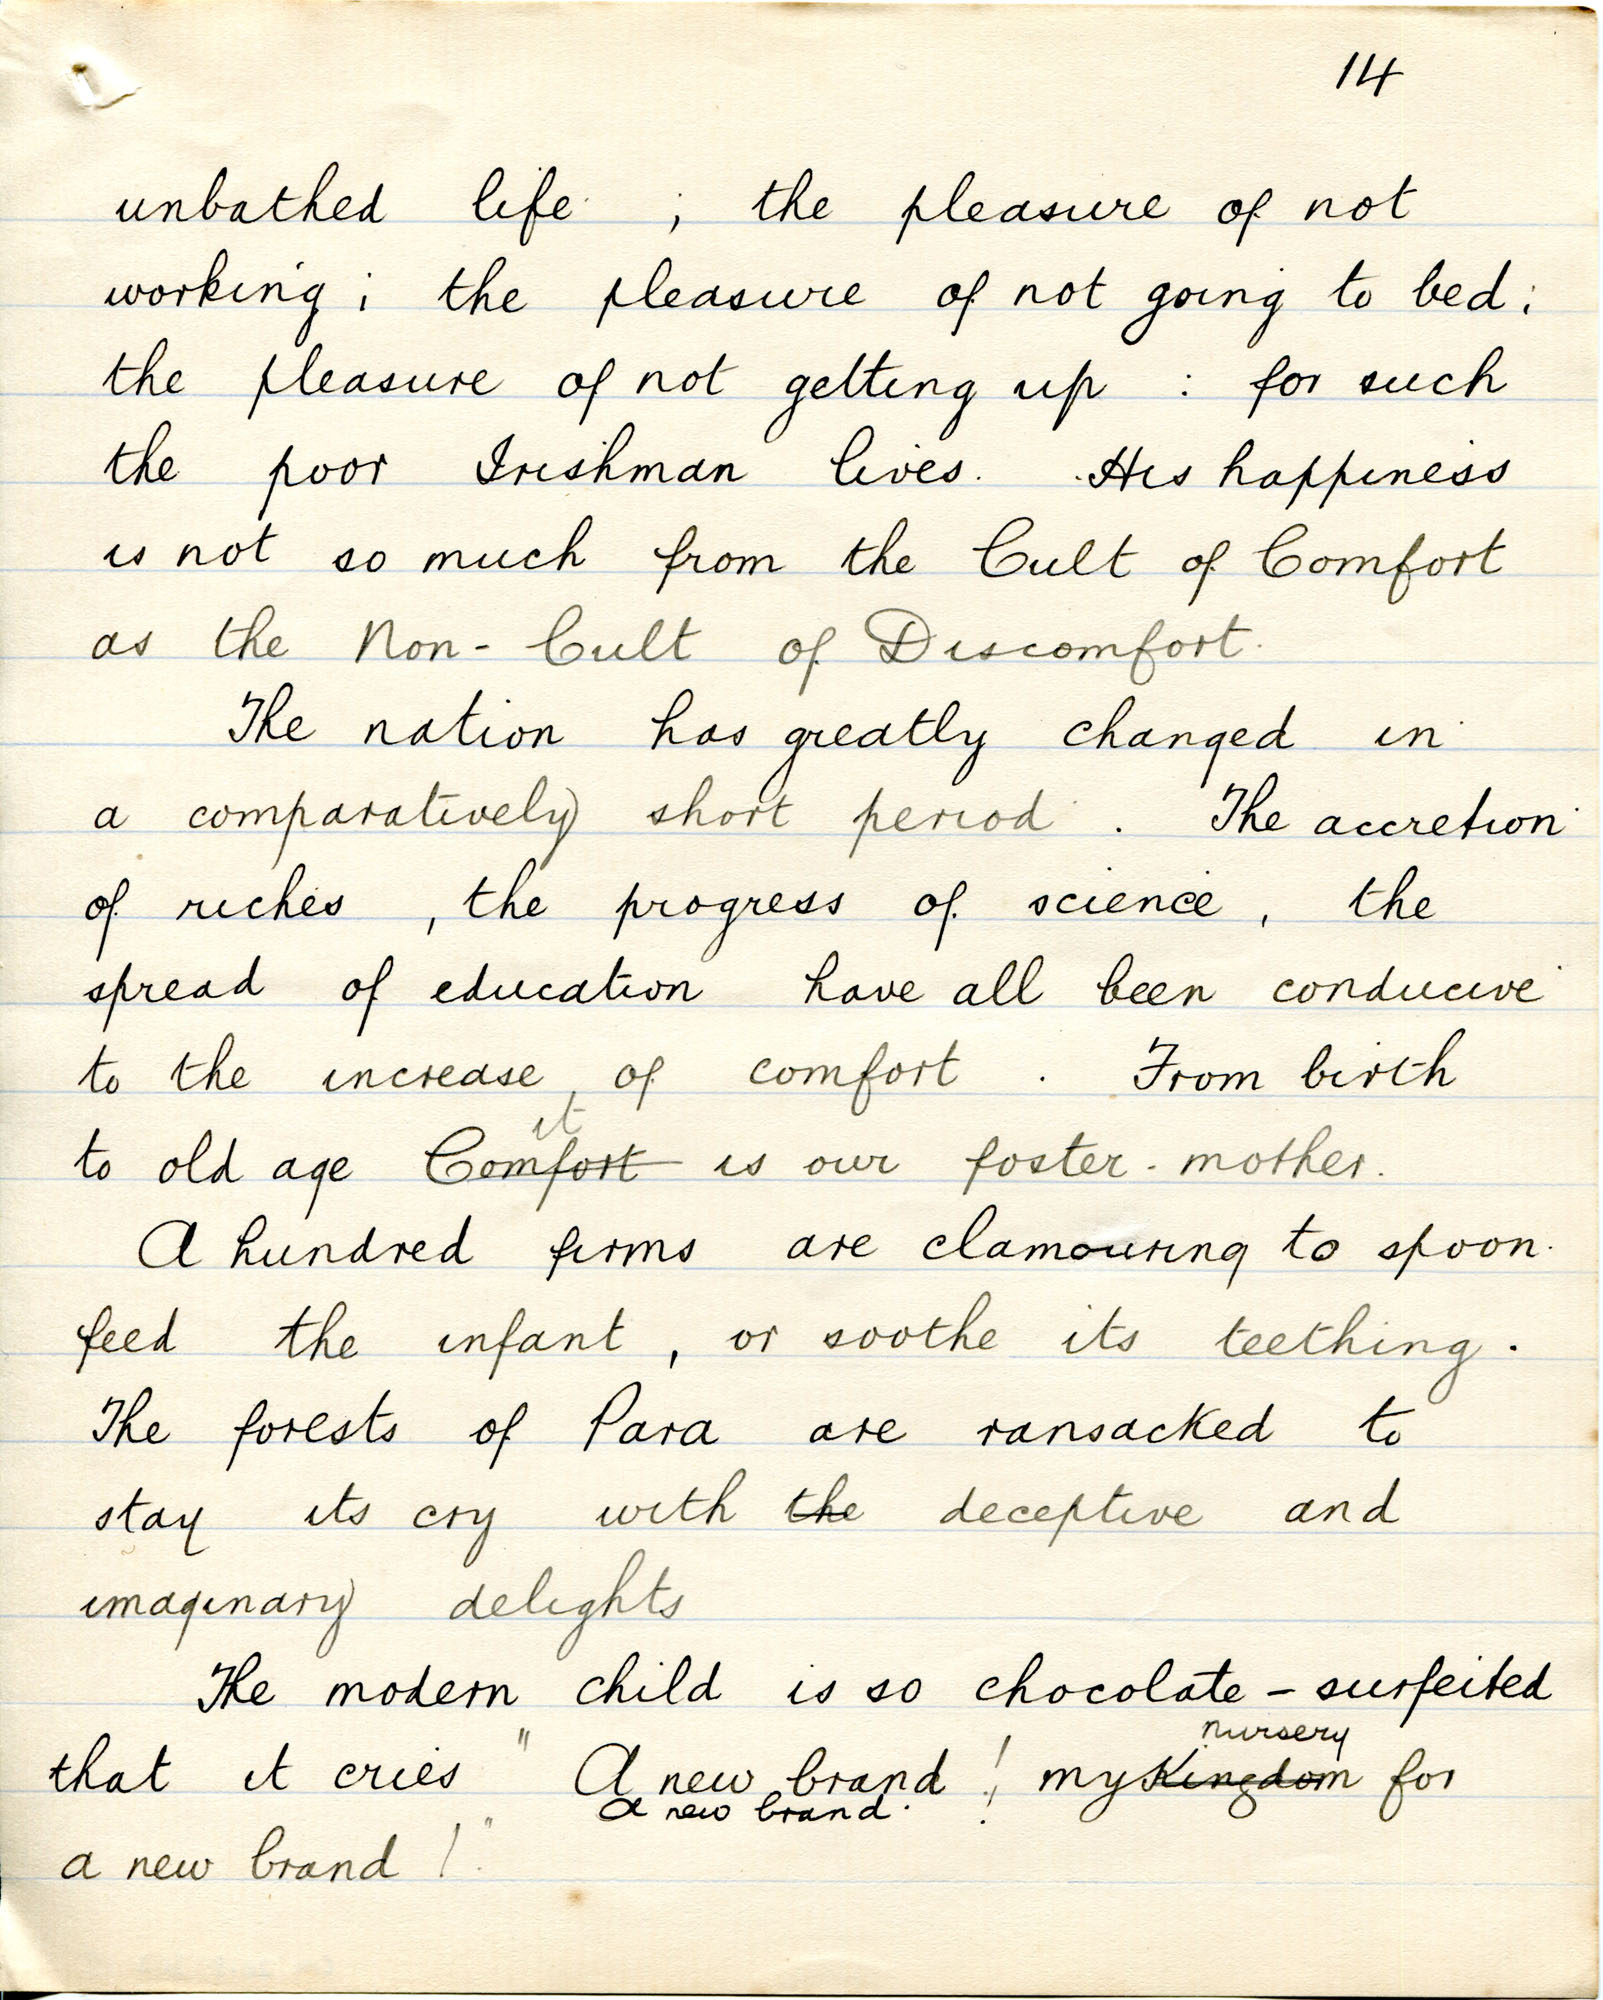 14
unbathed life ; the pleasure of not
working ; the pleasure of not going to bed ;
the pleasure of not getting up : for such
the poor Irishman lives. His happiness
is not so much from the Cult of Comfort
as the Non-Cult of Discomfort.
The nation has greatly changed in
a comparatively short period . The accretion
of riches , the progress of science , the
spread of education have all been conducive
to the increase of comfort . From birth
it
to old age Comfort is our foster-mother.
A hundred firms are clamouring to spoon-
feed the infant , or soothe its teething .
The forests of Para are ransacked to
stay its cry with the deceptive and
imaginary delights
The modern child is so chocolate - surfeited
nursery
that it cries " A new brand ! my Kingdom for
A new brand. !
a new brand ! "